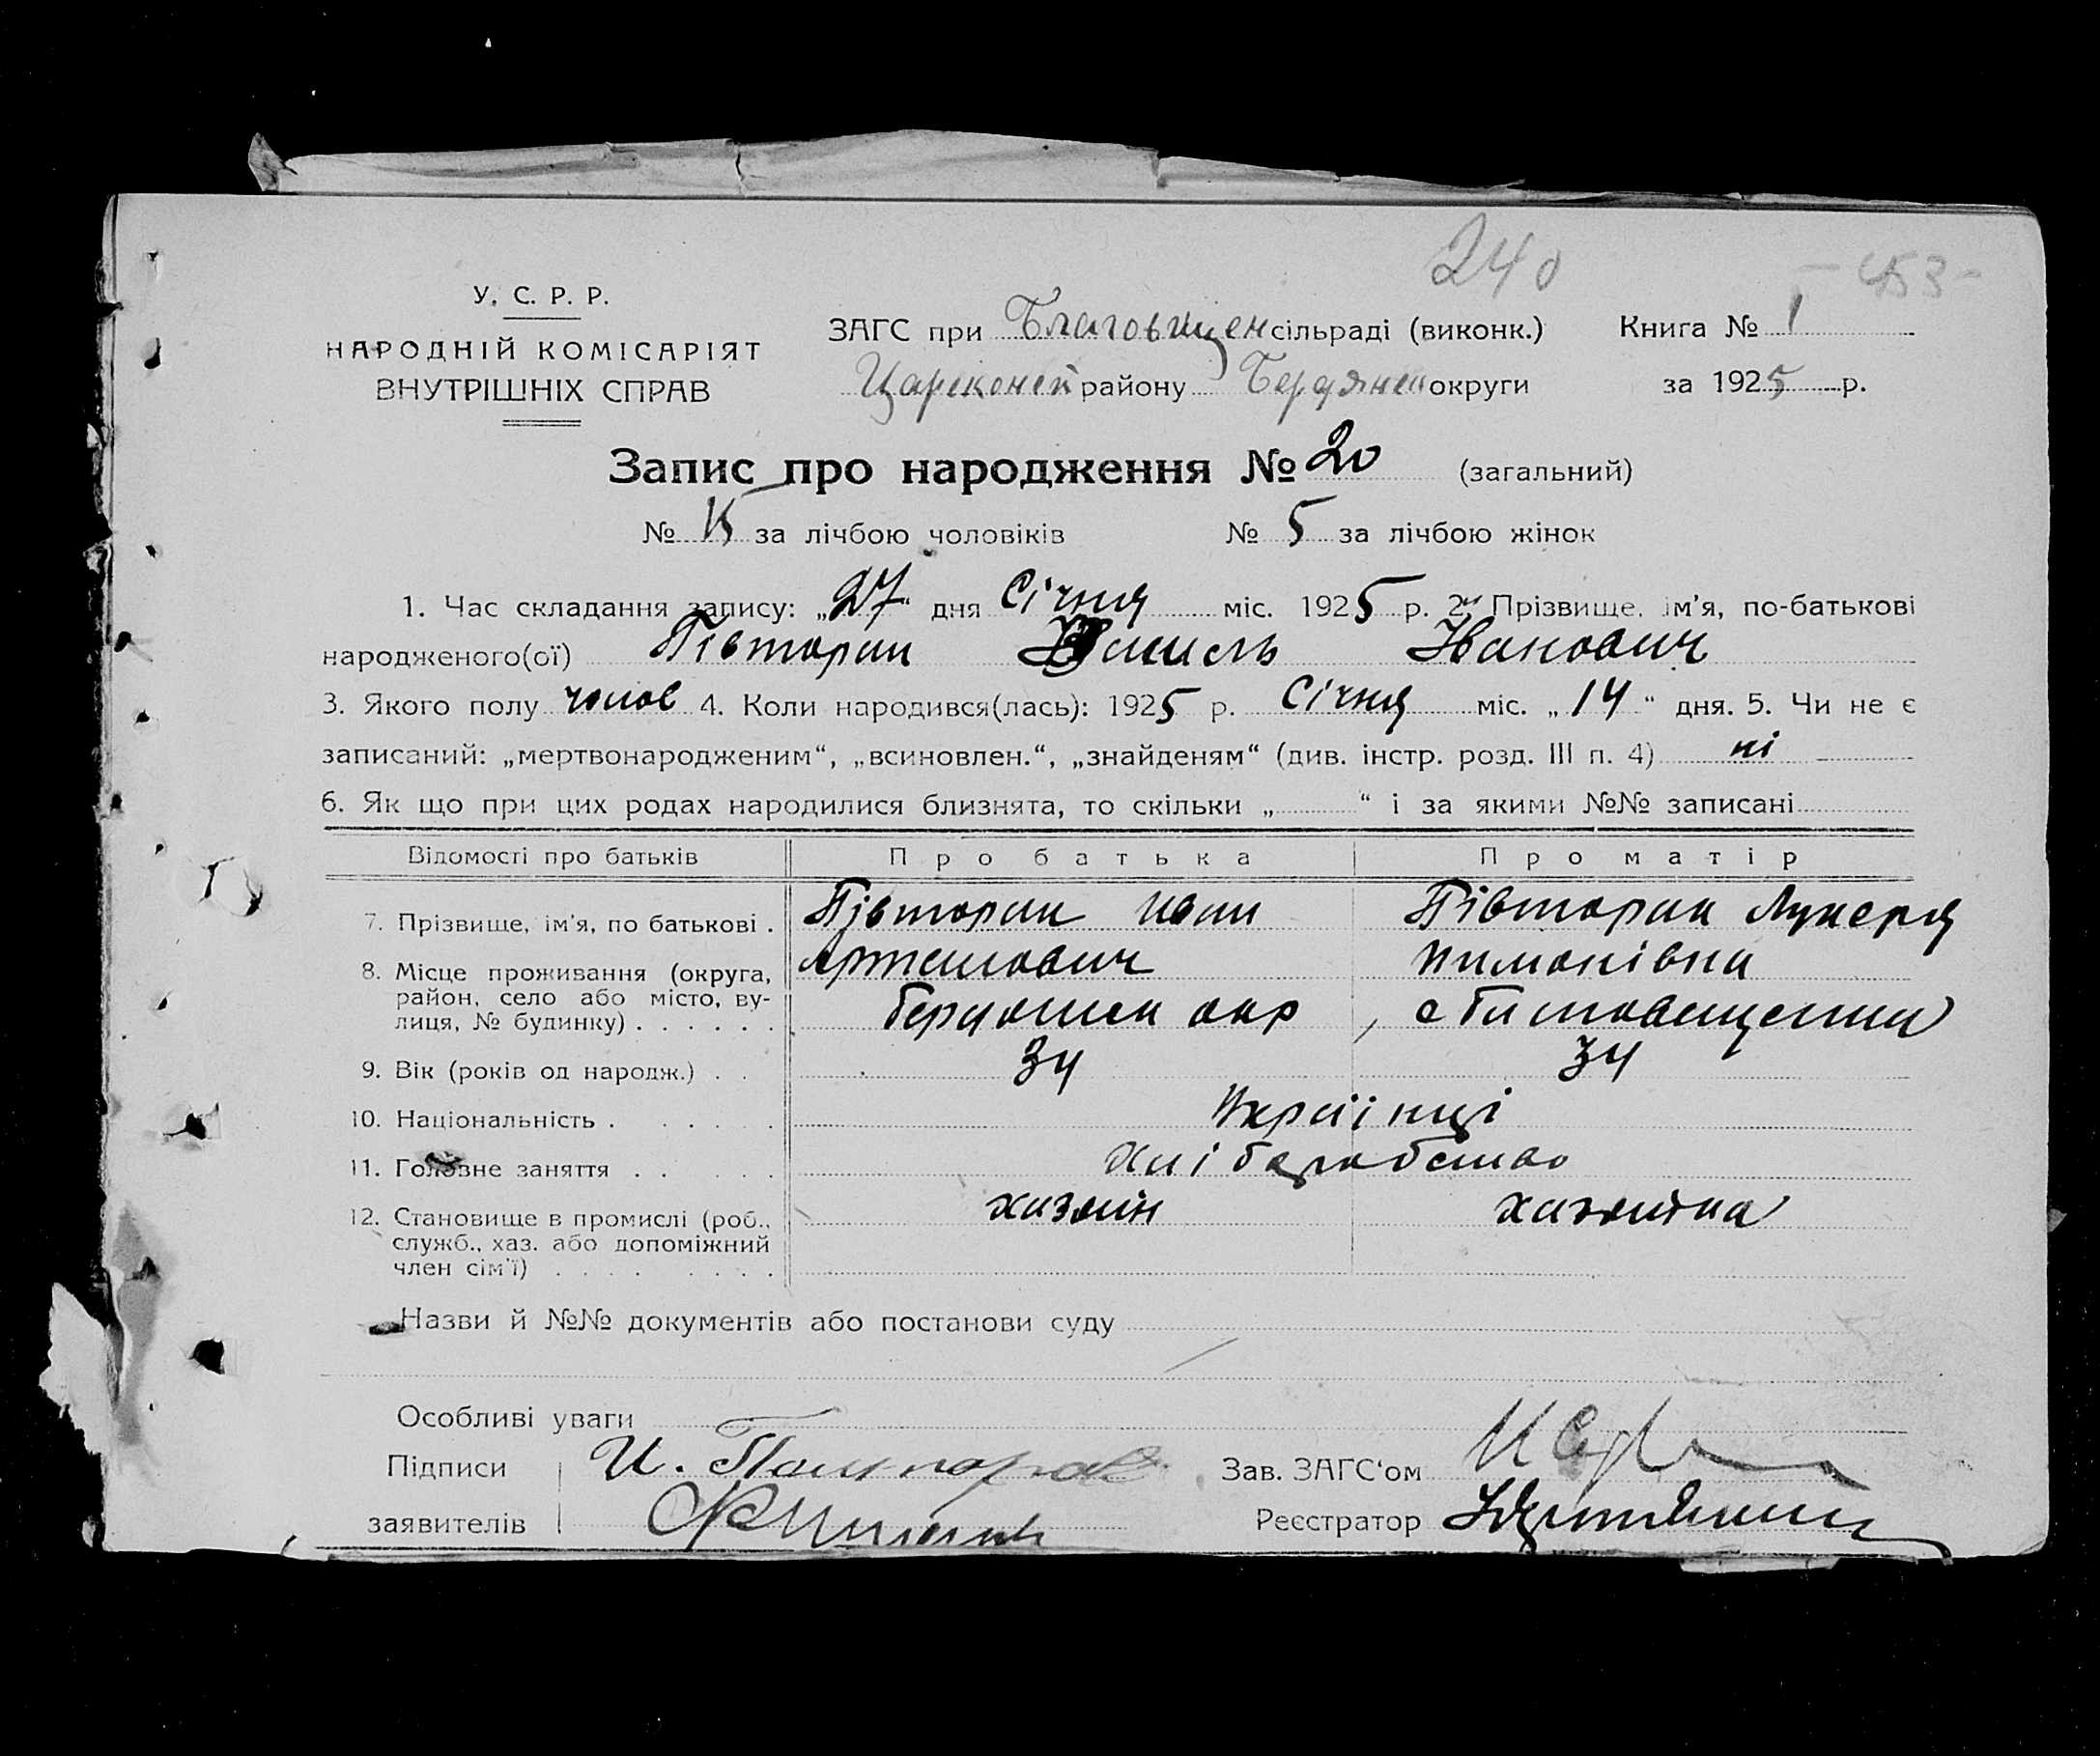 240 - 453 -
У. С. Р. Р.
НАРОДНІЙ КОМІСАРІЯТ
ВНУТРІШНІХ СПРАВ
ЗАГС при Благовищен сільраді (виконк.) Книга № 1
району Бердянськ округи за 1925 р.
Запис про народження № 20 (загальний)
№ 15 за лічбою чоловіків № 5 за лічбою жінок
1. Час складання запису: „27“ дня Січня міс. 1925 р. 2. Прізвище, ім’я, по-батькові
народженого(ої) Півторак Василь Іванович
3. Якого полу чолов 4. Коли народився(лась): 1925 р. Січня міс. „14“ дня. 5. Чи не є
записаний: „мертвонародженим“, „всиновлен.“, „знайденям“ (див. інстр. розд. III п. 4) ні
6. Як що при цих родах народилися близнята, то скільки „ “ і за якими №№ записані
Відомості про батьків Про батька Про матір
7. Прізвище, ім’я, по батькові . Півторак Иван Півторак Лукеря
Артемович Пимонівна
8. Місце проживання (округа,
район, село або місто, ву-
лиця, № будинку) . . . . . . Бердянськ окр, с Благовещенка
9. Вік (років од народж.) . . 34 34
10. Національність . . . . . Українці
11. Головне заняття . . . . . Хліборобство
12. Становище в промислі (роб., хазяін хазяйка
служб., хаз. або допоміжний
член сім’ї) . . . . . . . .
Назви й №№ документів або постанови суду
Особливі уваги
Підписи И. Зав. ЗАГС‘ом
заявителів Реєстратор